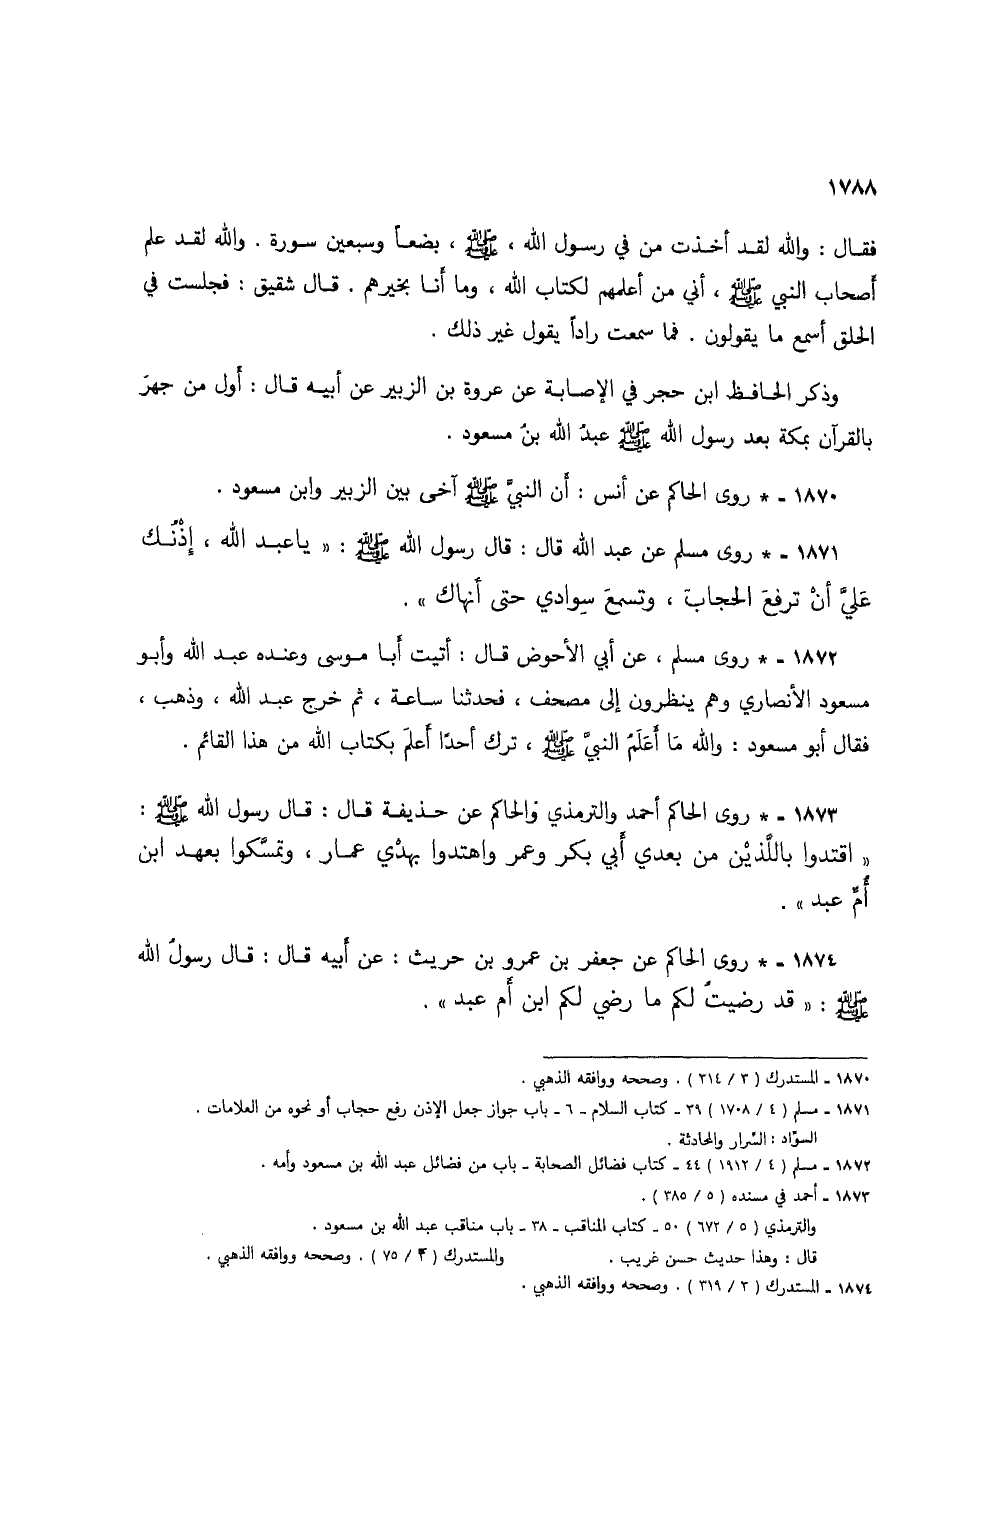 ١٧٨٨
فقال : والله لقد أخذت من في رسول الله ، ﷺ ، بضعاً وسبعين سورة . والله لقد علم
أصحاب النبي ﷺ ، أني من أعلمهم لكتاب الله ، وما أنا بخيرهم . قال شقيق : فجلست في
الحلق أسمع ما يقولون . فما سمعت راداً يقول غير ذلك .
وذكر الحافظ ابن حجر في الإصابة عن عروة بن الزبير عن أبيه قال : أول من جهرَ
بالقرآن بمكة بعد رسول الله ﷺ عبدُ الله بنُ مسعود .
١٨٧٠ - * روى الحاكم عن أنس : أن النبيَّ ﷺ آخى بين الزبير وابن مسعود .
١٨٧١ - * روى مسلم عن عبد الله قال : قال رسول الله ﷺ : « ياعبد الله ، إِذْنُك
عَليَّ أنْ ترفعَ الحجابَ ، وتسمعَ سِوادي حتى أنهاك » .
١٨٧٢ - * روى مسلم ، عن أبي الأحوض قال : أتيت أبا موسى وعنده عبد الله وأبو
مسعود الأنصاري وهم ينظرون إلى مصحف ، فحدثنا ساعة ، ثم خرج عبد الله ، وذهب ،
فقال أبو مسعود : والله مَا أَعَلَمُ النبيَّ ﷺ ، ترك أحدًا أعلمَ بكتاب الله من هذا القائم .
١٨٧٣ - * روى الحاكم أحمد والترمذي والحاكم عن حذيفة قال : قال رسول الله ﷺ :
« اقتدوا باللَّذيْن من بعدي أَبي بكر وعمر واهتدوا بهدْي عمار ، وتمسَّكوا بعهد ابن
أُمِّ عبد » .
١٨٧٤ - * روى الحاكم عن جعفر بن عمرو بن حريث : عن أبيه قال : قال رسولُ الله
ﷺ : « قد رضيتُ لكم ما رضي لكم ابن أم عبد » .
١٨٧٠ - المستدرك ( ٣ / ٣١٤ ) . وصححه ووافقه الذهبي .
١٨٧١ - مسلم ( ٤ / ١٧٠٨ ) ٣٩ - كتاب السلام - ٦ - باب جواز جعل الإذن رفع حجاب أو نحوه من العلامات .
السوَاد : السِّرار والمحادثة .
١٨٧٢ - مسلم ( ٤ / ١٩١٢ ) ٤٤ - كتاب فضائل الصحابة - باب من فضائل عبد الله بن مسعود وأمه .
١٨٧٣ - أحمد في مسنده ( ٥ / ٣٨٥ ) .
والترمذي ( ٥ / ٦٧٢ ) ٥٠ - كتاب المناقب - ٣٨ - باب مناقب عبد الله بن مسعود .
قال : وهذا حديث حسن غريب . والمستدرك ( ٣ / ٧٥ ) . وصححه ووافقه الذهبي .
١٨٧٤ - المستدرك ( ٣ / ٣١٩ ) . وصححه ووافقه الذهبي .